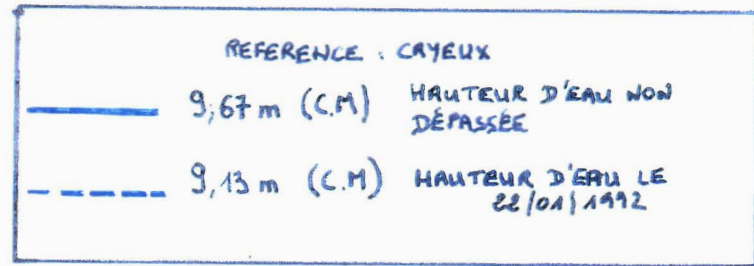 REFERENCE : CAYEUX
9,67 m (C.M) HAUTEUR D'EAU NON
DÉPASSÉE
9,13 m (C.M) HAUTEUR D'EAU LE
22/01/1992